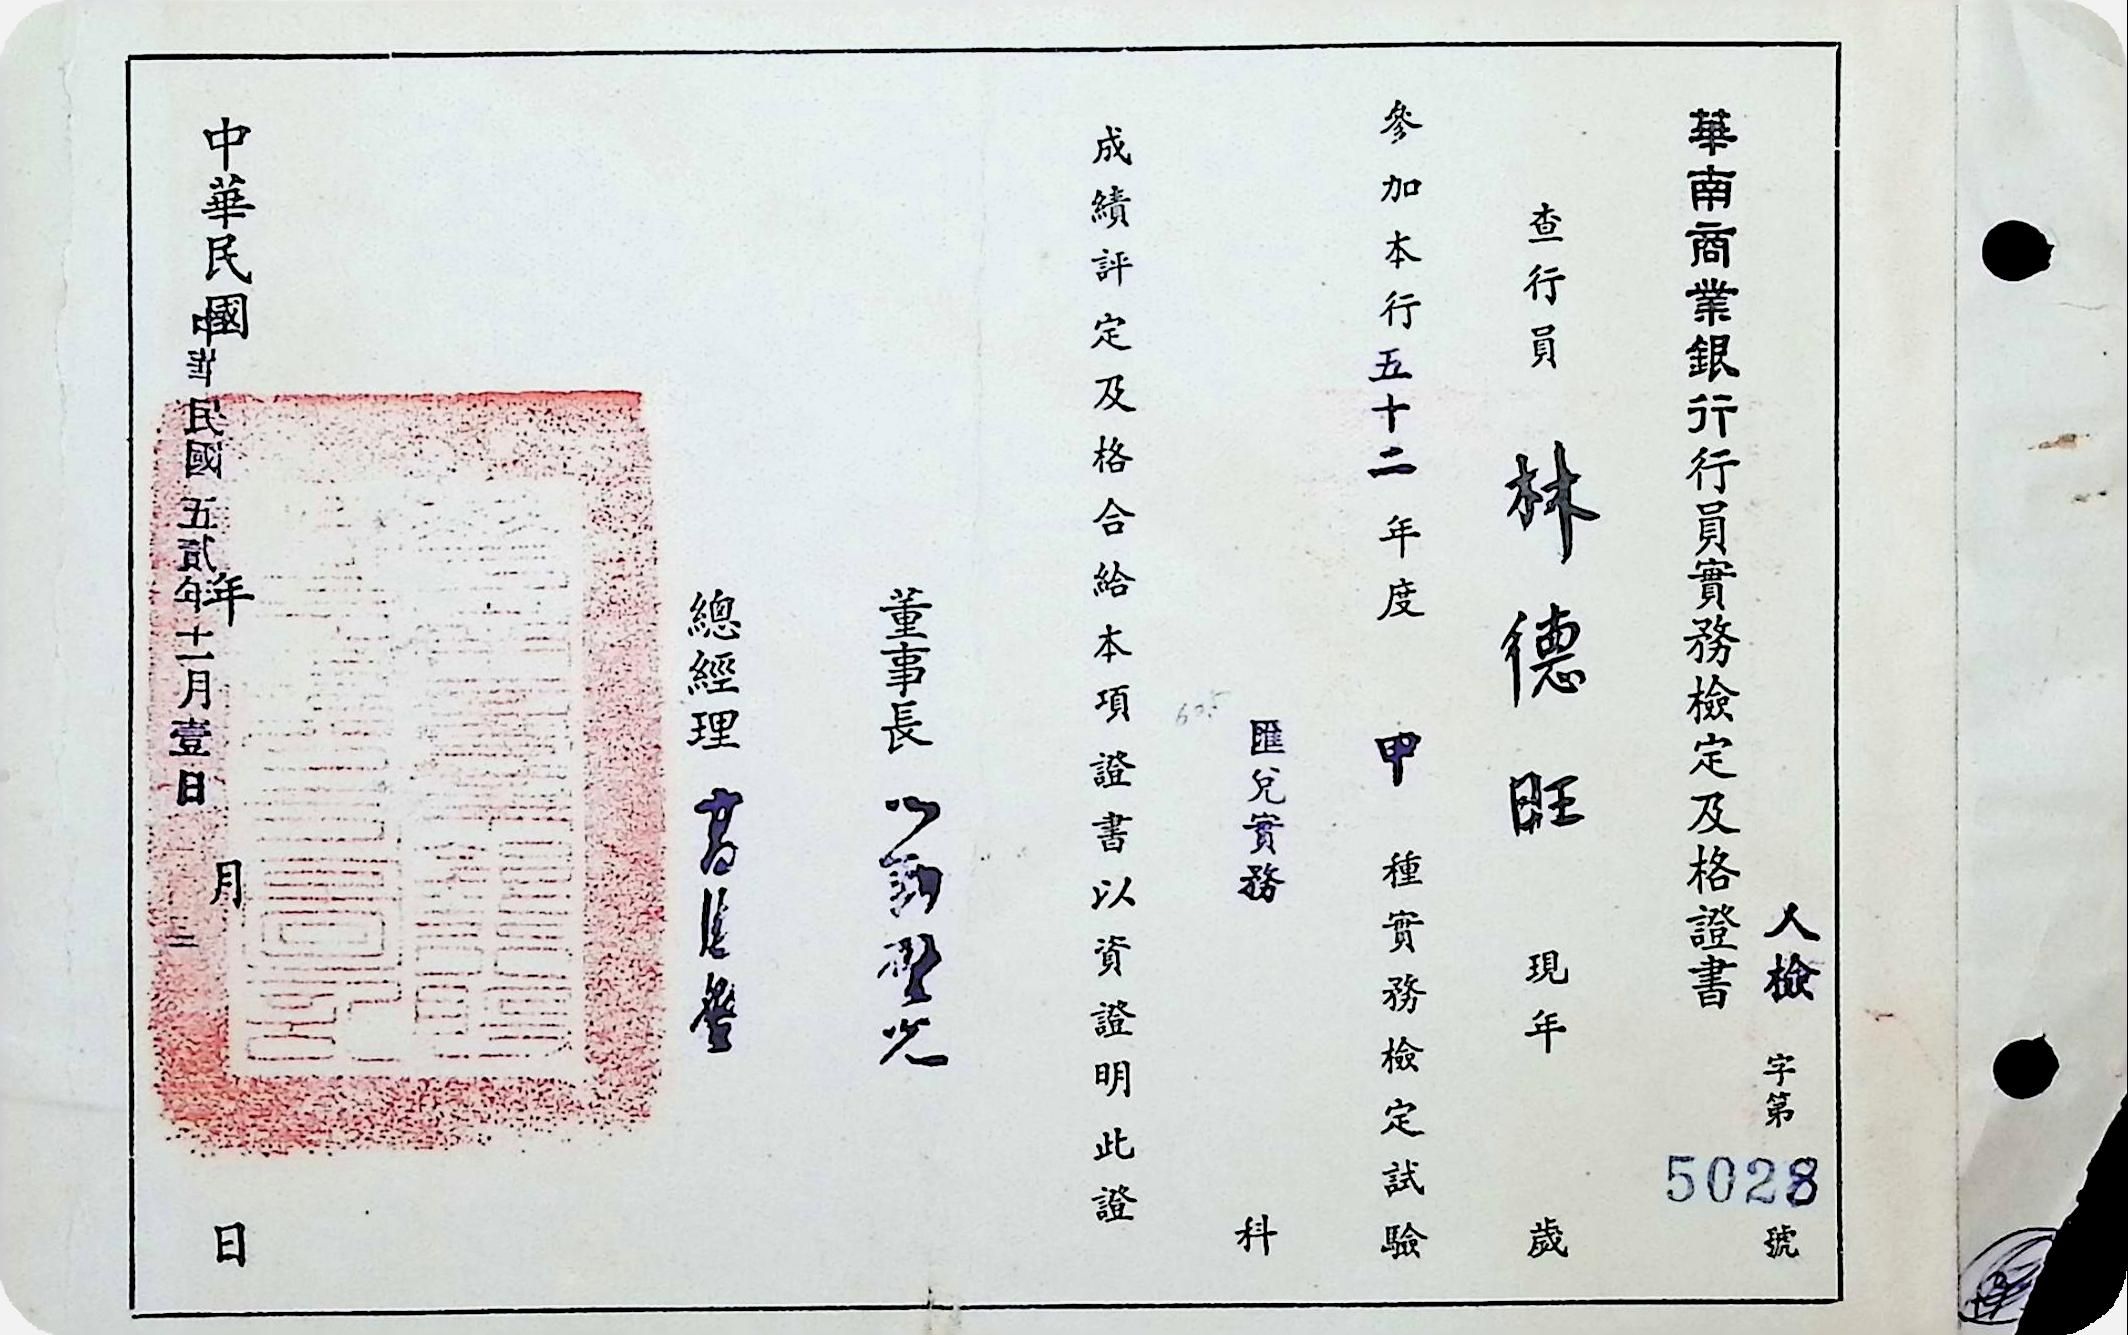 華南商業銀行行員實務檢定及格證書
人檢字第5028號
查行員林德旺現年 歲
參加本行五十二年度甲種實務檢定試驗
匯兌實務 科
成績評定及格合給本項證書以資證明此證
董事長
總經理
中華民國 年 月 日
中華民國五貳年十一月壹日